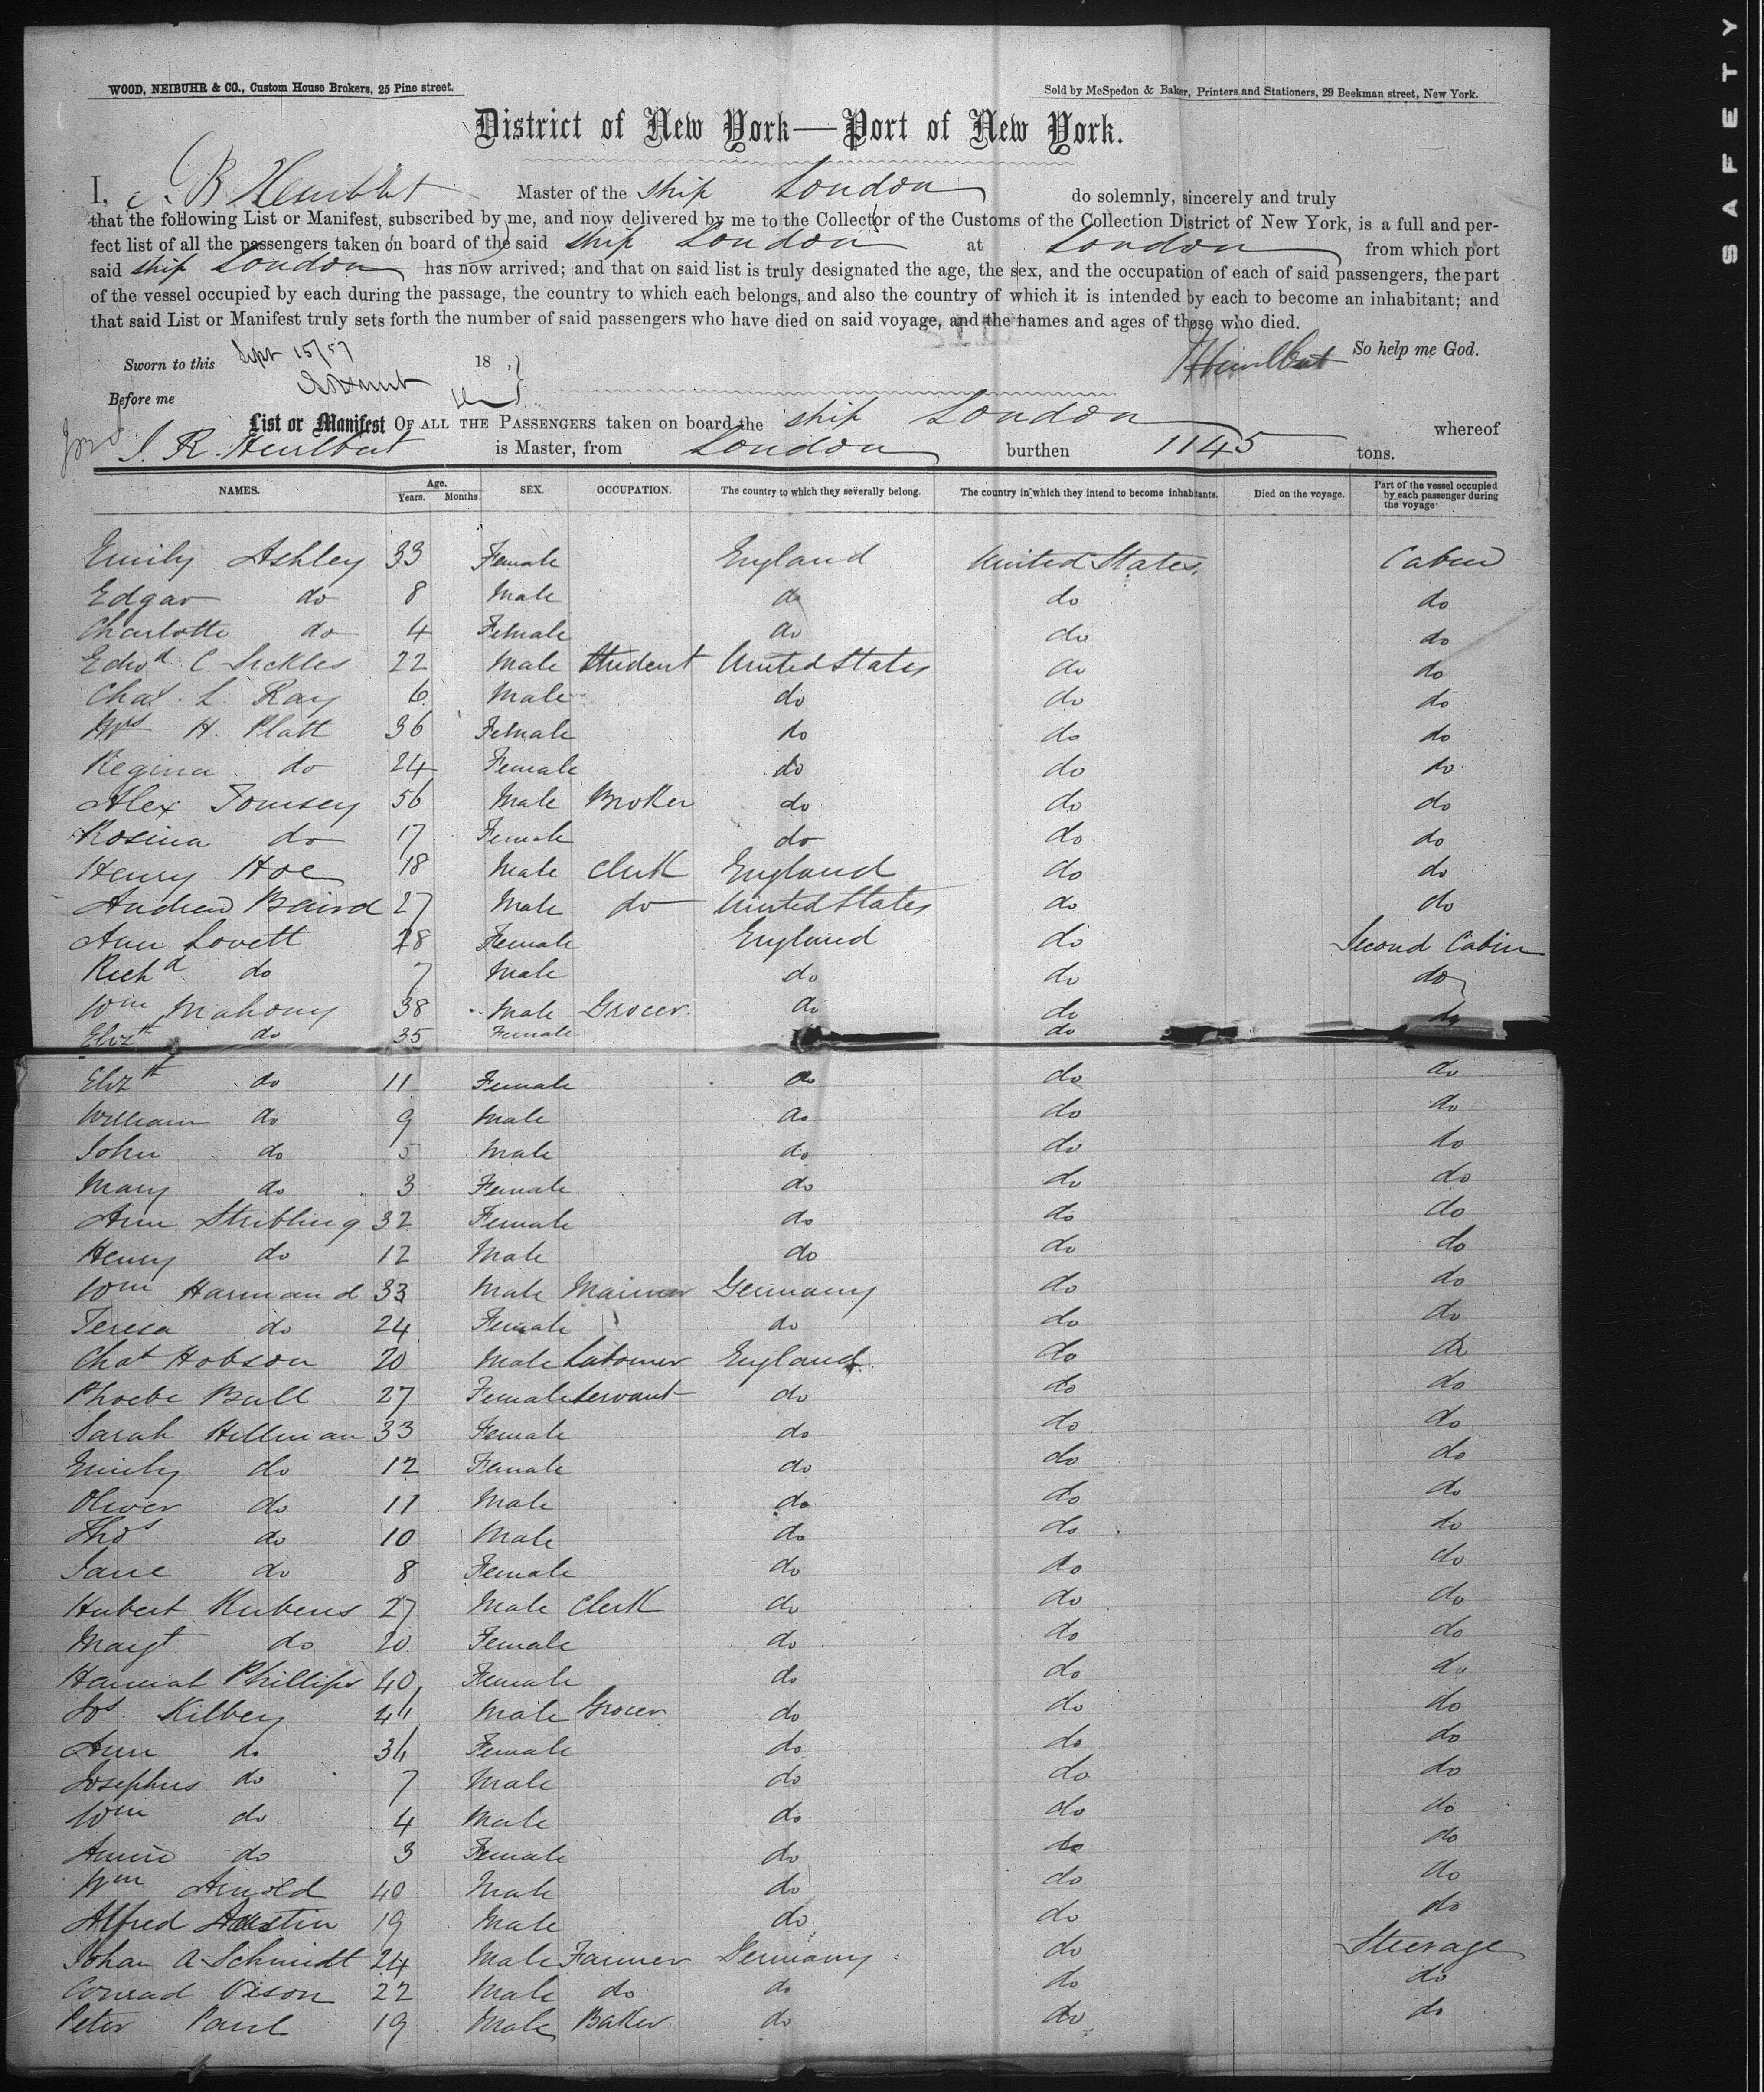 SAFETY
WOOD, NEIBUHR & CO., Custom House Brokers, 25 Pine street.
Sold by McSpedon & Baker, Printers and Stationers, 29 Beekman street, New York.
District of New York—Port of New York.
I, B Hurlbut Master of the ship London do solemnly, sincerely and truly
that the following List or Manifest, subscribed by me, and now delivered by me to the Collector of the Customs of the Collection District of New York, is a full and per-
fect list of all the passengers taken on board of the said ship London at London from which port
said ship London has now arrived; and that on said list is truly designated the age, the sex, and the occupation of each of said passengers, the part
of the vessel occupied by each during the passage, the country to which each belongs, and also the country of which it is intended by each to become an inhabitant; and
that said List or Manifest truly sets forth the number of said passengers who have died on said voyage, and the names and ages of those who died.
Sworn to this Sept 15/57 18 , Hurlbut So help me God.
Before me
List or Manifest OF ALL THE PASSENGERS taken on board the ship London whereof
J. R. Hurlbut is Master, from London burthen 1145 tons.
NAMES. Age. Years. Months. SEX. OCCUPATION. The country to which they severally belong. The country in which they intend to become inhabitants. Died on the voyage. Part of the vessel occupied by each passenger during the voyage
Emily Ashley 33 Female England United States, Cabin
Edgar do 8 Male do do do
Charlotte do 4 Female do do do
Edwd C Sickles 22 Male Student United States do do
Chas. L. Ray 6 Male do do do
Mrs H. Platt 36 Female do do do
Regina do 24 Female do do do
Alex Tousey 56 Male Broker do do do
Rosina do 17 Female do do do
Henry Hoe 18 Male Clerk England do do
Andrew Baird 27 Male do United States do do
Ann Lovett 28 Female England do Second Cabin
Richd do 7 Male do do do
Wm Mahony 38 Male Grocer do do do
Elizth do 35 Female do
Elizth do 11 Female do do do
William do 9 Male do do do
John do 5 Male do do do
Mary do 3 Female do do do
Ann Stribling 32 Female do do do
Henry do 12 Male do do do
Wm Harmand 33 Male Mariner Germany do do
Teresa do 24 Female do do do
Chas Hobson 20 Male Labourer England do do
Phoebe Bull 27 Female Servant do do do
Sarah Hillman 33 Female do do do
Emily do 12 Female do do do
Oliver do 11 Male do do do
Thos do 10 Male do do do
Jane do 8 Female do do do
Hubert Rubens 27 Male Clerk do do do
Margt do 20 Female do do do
Hannah Phillips 40 Female do do do
Jos. Kilbey Male Grocer do do do
Ann do Female do do do
Josephus do 7 Male do do do
Wm do 4 Male do do do
Annie do 3 Female do do do
Wm Arnold 40 Male do do do
Alfred Austin 19 Male do do do
Johan A Schmidt 24 Male Farmer Germany do Steerage
Conrad 22 Male do do do do
Peter Paul 19 Male Baker do do do